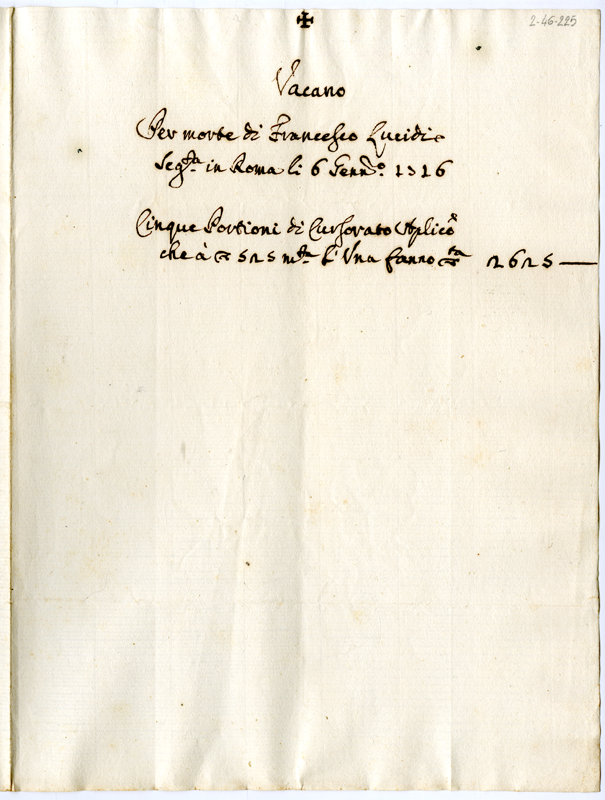 2-46-225
✠
Vacano
Per morte di Francesco Lucidi
Seg.ta in Roma li 6 Genn.o 1716
Cinque Portioni di Cursorato Aplico
che à 525 m.ta l'Una fanno 2625 —